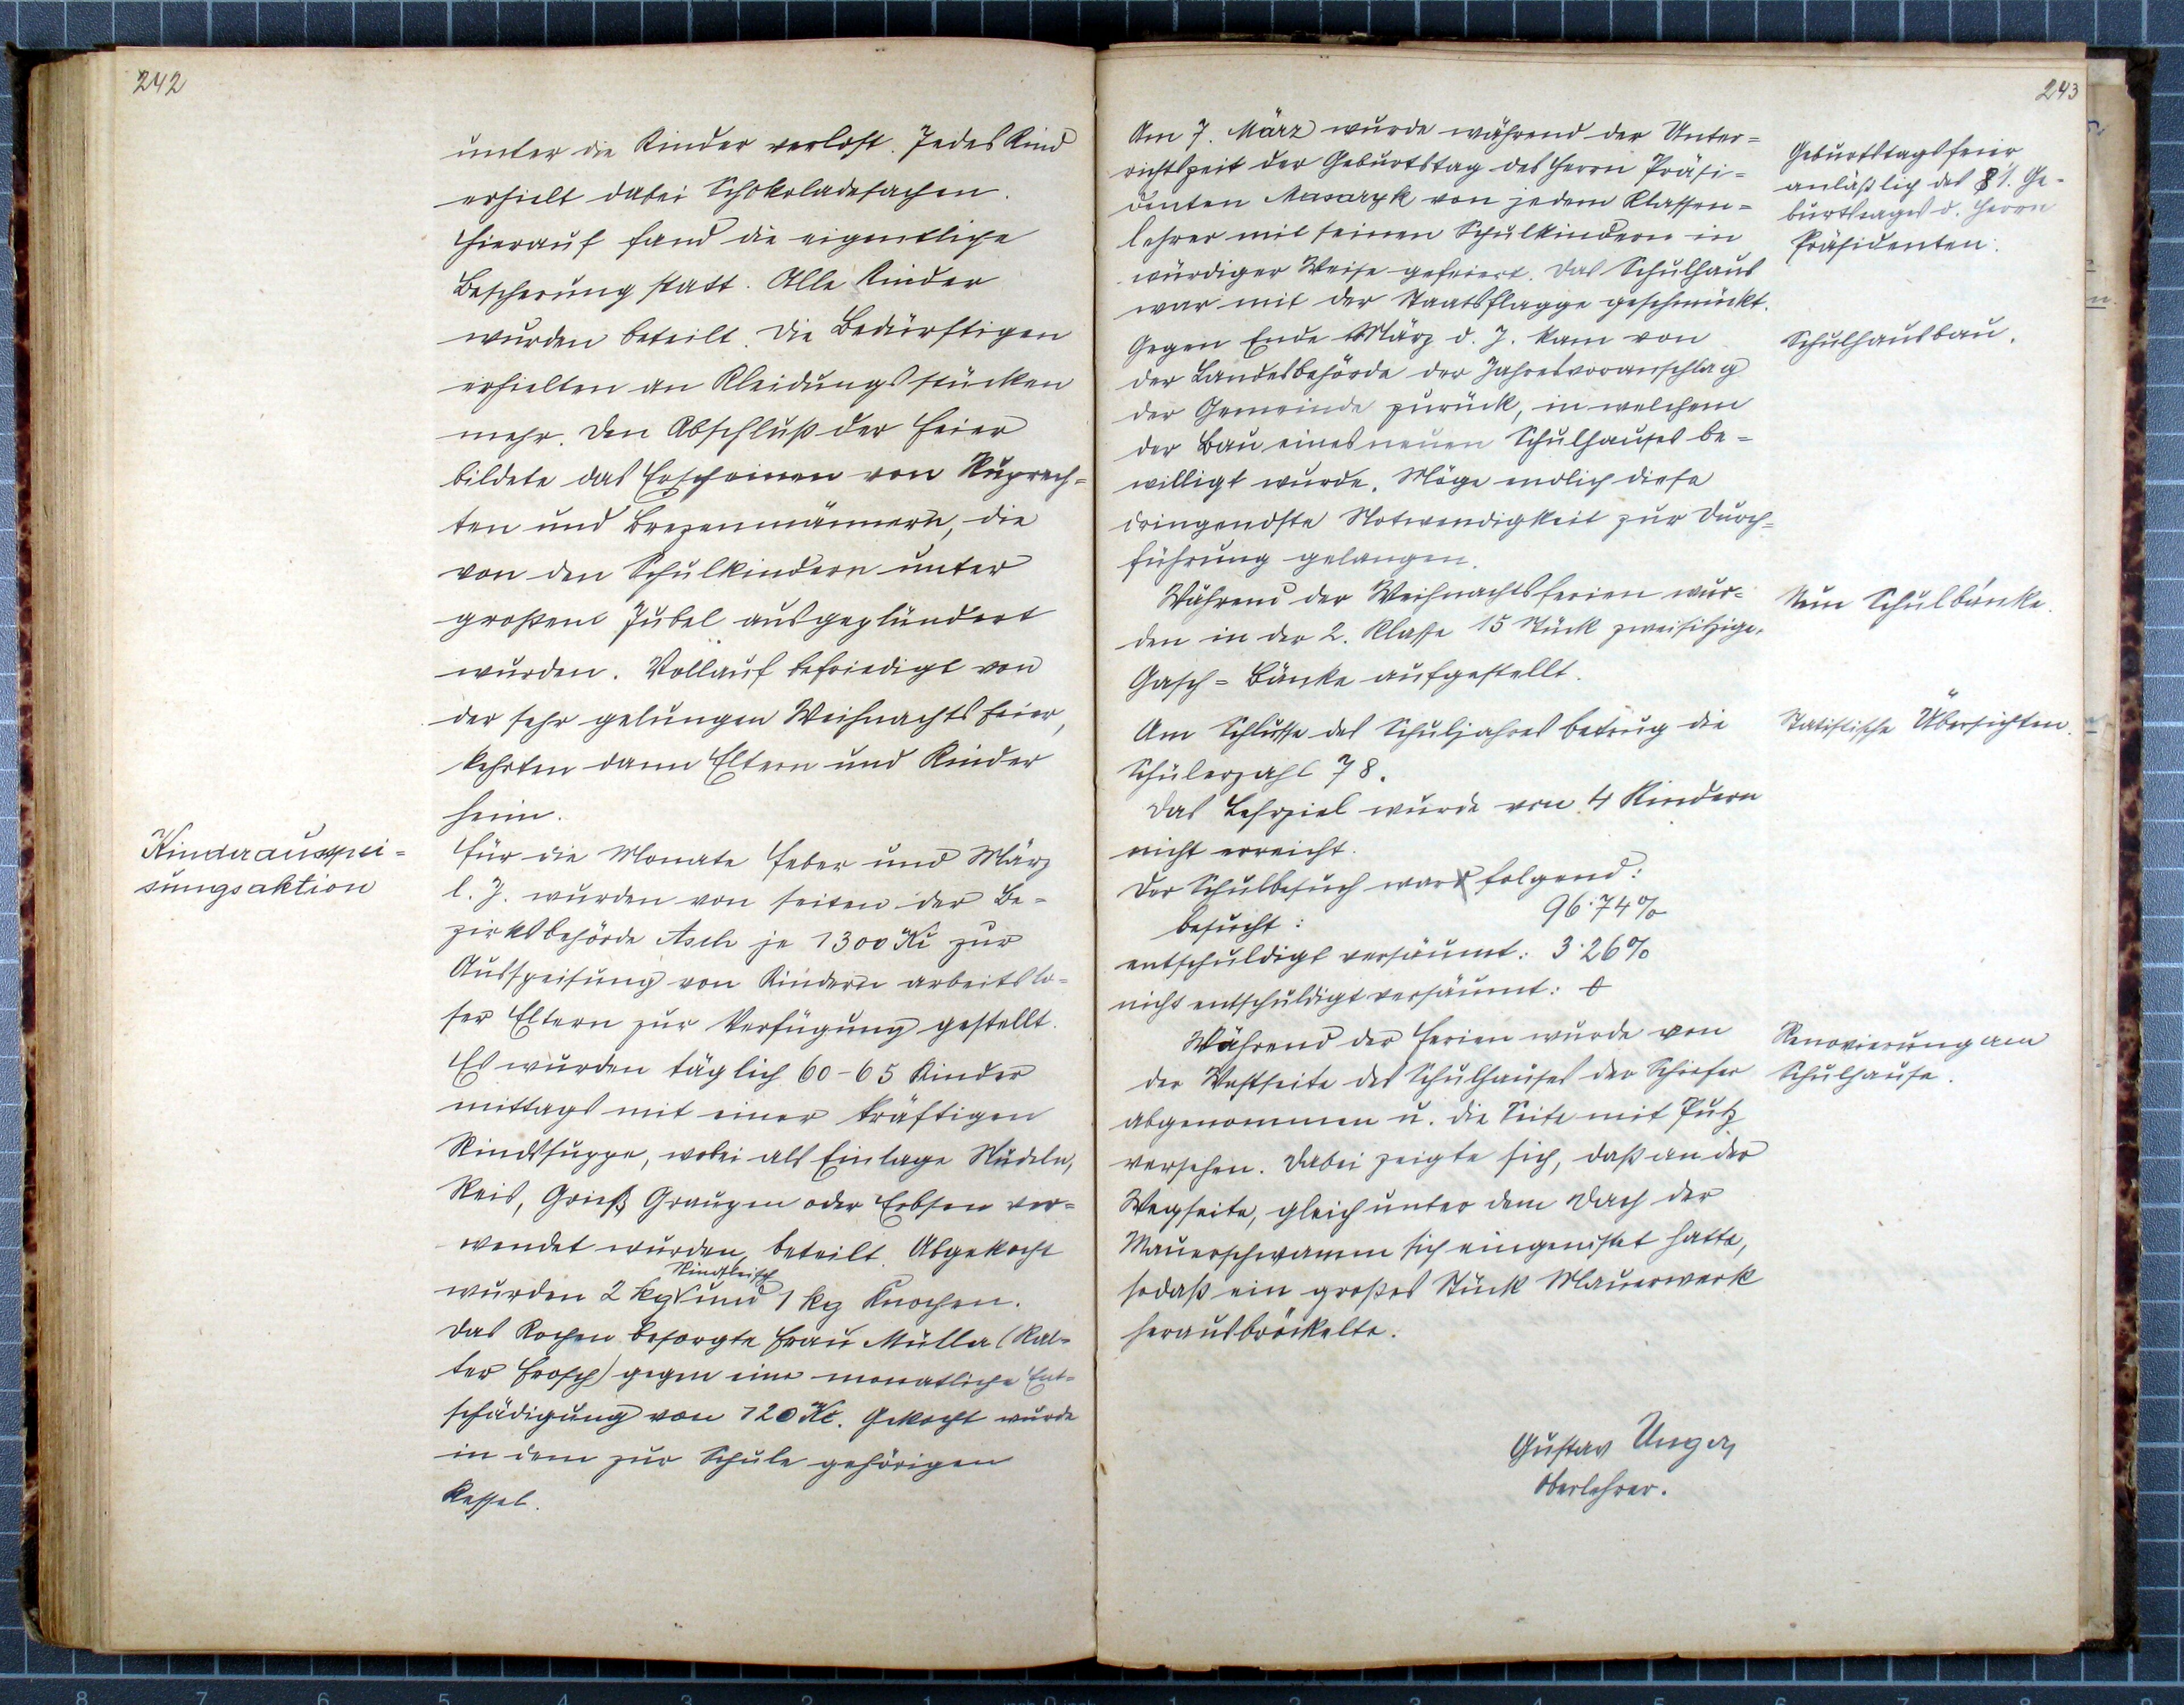 242
unter die Kinder verlost. Jedes Kind
erhielt dabei Schokoladesachen.
Hierauf fand die eigentliche
Bescherung statt. Alle Kinder
wurden beteilt. Die Bedürftigen
erhielten an Kleidungsstücken
mehr. Den Abschluß der Feier
bildete das Erscheinen von Ruprech=
ten und Brezenmännern, die
von den Schulkindern unter
großem Jubel ausgeplündert
wurden. Vollauf befriedigt von
der sehr gelungen Weihnachtsfeier,
kehrten dann Eltern und Kinder
heim.
Kinderausspei=
sungsaktion
Für die Monate Feber und März
l. J. wurden von seiten der Be=
zirksbehörde Asch je 1300 Kč zur
Ausspeisung von Kindern arbeitslo=
ser Eltern zur Verfügung gestellt.
Es wurden täglich 60-65 Kinder
mittags mit einer kräftigen
Rindsuppe, wobei als Einlage Nudeln,
Reis, Grieß Graupen oder Erbsen ver=
wendet wurden, beteilt. Abgekocht
Rindfleisch
wurden 2 kg und 1 kg Knochen.
Das Kochen besorgte Frau Müller (Kal=
ter Frosch) gegen eine monatliche Ent=
schädigung von 120 Kč. Gekocht wurde
in dem zur Schule gehörigen
Kessel.
243
Am 7. März wurde während der Unter=
richtszeit der Geburtstag des Herrn Präsi=
denten Masaryk von jedem Klassen=
lehrer mit seinen Schulkindern in
würdiger Weise gefeiert. Das Schulhaus
war mit der Staatsflagge geschmückt.
Geburtstagsfeier
anläßlich des 81. Ge-
burtstages d. Herrn
Präsidenten.
Gegen Ende März d. J. kam von
der Landesbehörde der Jahresvoranschlag
der Gemeinde zurück, in welchem
der Bau eines neuen Schulhauses be=
willigt wurde. Möge endlich diese
dringendste Notwendigkeit zur Durch=
führung gelangen.
Schulhausbau.
Während der Weihnachtsferien wur=
den in der 2. Klasse 15 Stück zweisitzige
Gasch=Bänke aufgestellt.
Neue Schulbänke.
Am Schlusse des Schuljahres betrug die
Schülerzahl 78.
Das Lehrziel wurde von 4 Kindern
nicht erreicht.
Der Schulbesuch war folgend:
besucht: 96·74%
entschuldigt versäumt: 3·26%
nicht entschuldigt versäumt: 0
Statistische Übersichten.
Während der Ferien wurde von
der Westseite des Schulhauses der Schiefer
abgenommen u. die Seite mit Putz
versehen. Dabei zeigte sich, daß an der
Wegseite, gleich unter dem Dach der
Mauerschwamm sich eingenistet hatte,
sodaß ein großes Stück Mauerwerk
herausbröckelte.
Renovierung am
Schulhause.
Gustav Unger
Oberlehrer.